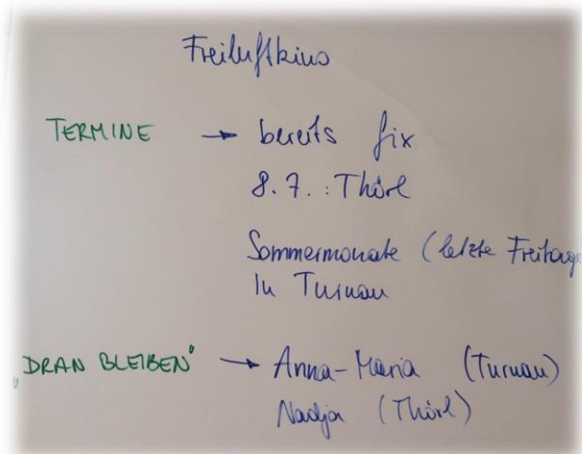 Freiluftkino
TERMINE → bereits fix
8.7. : Thörl
Sommermonate (letzte Freitage
In Turnau
"DRAN BLEIBEN" → Anna-Maria (Turnau)
Nadja (Thörl)